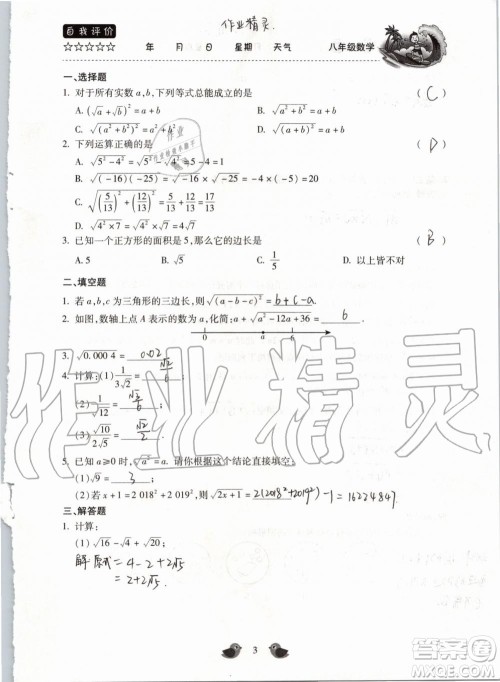 自我评价
作业精灵
☆☆☆☆☆ 年 月 日 星期 天气 八年级数学
一、选择题
1. 对于所有实数 a,b,下列等式总能成立的是 ( C )
A. (√a+√b)²=a+b B. √(a²+b²)=a+b
C. √((a²+b²)²)=a²+b² D. √((a+b)²)=a+b
2. 下列运算正确的是 ( D )
A. √(5²-4²)=√5²-√4²=5-4=1
B. √((-16)(-25))=√-16×√-25
C. √((5/13)²+(12/13)²)=5/13+12/13=17/13
D. √(4²×7)=√4²×√7=4√7
3. 已知一个正方形的面积是 5,那么它的边长是 ( B )
A. 5 B. √5 C. 1/5 D. 以上皆不对
二、填空题
1. 若 a,b,c 为三角形的三边长,则√((a-b-c)²)=b+c-a.
2. 如图,数轴上点 A 表示的数为 a,化简:a+√(a²-12a+36)= 6 .
0 a 6
3. √0.0004= 0.02
4. 计算:(1) 1/(3√2)= √2/6
(2) √(1/12)=
(3) √10/(2√5)= √2/2 .
5. 已知 a≥0 时,√a²=a. 请你根据这个结论直接填空:
(1) √9= 3 ;
(2) 若 x+1=2 018²+2 019²,则√(2x+1)=2(2018²+2019²)-1=16224847
三、解答题
1. 计算:
(1) √16-√4+√20;
解:原式=4-2+2√5
=2+2√5
3
作业精灵
答案圈
MXQE.COM